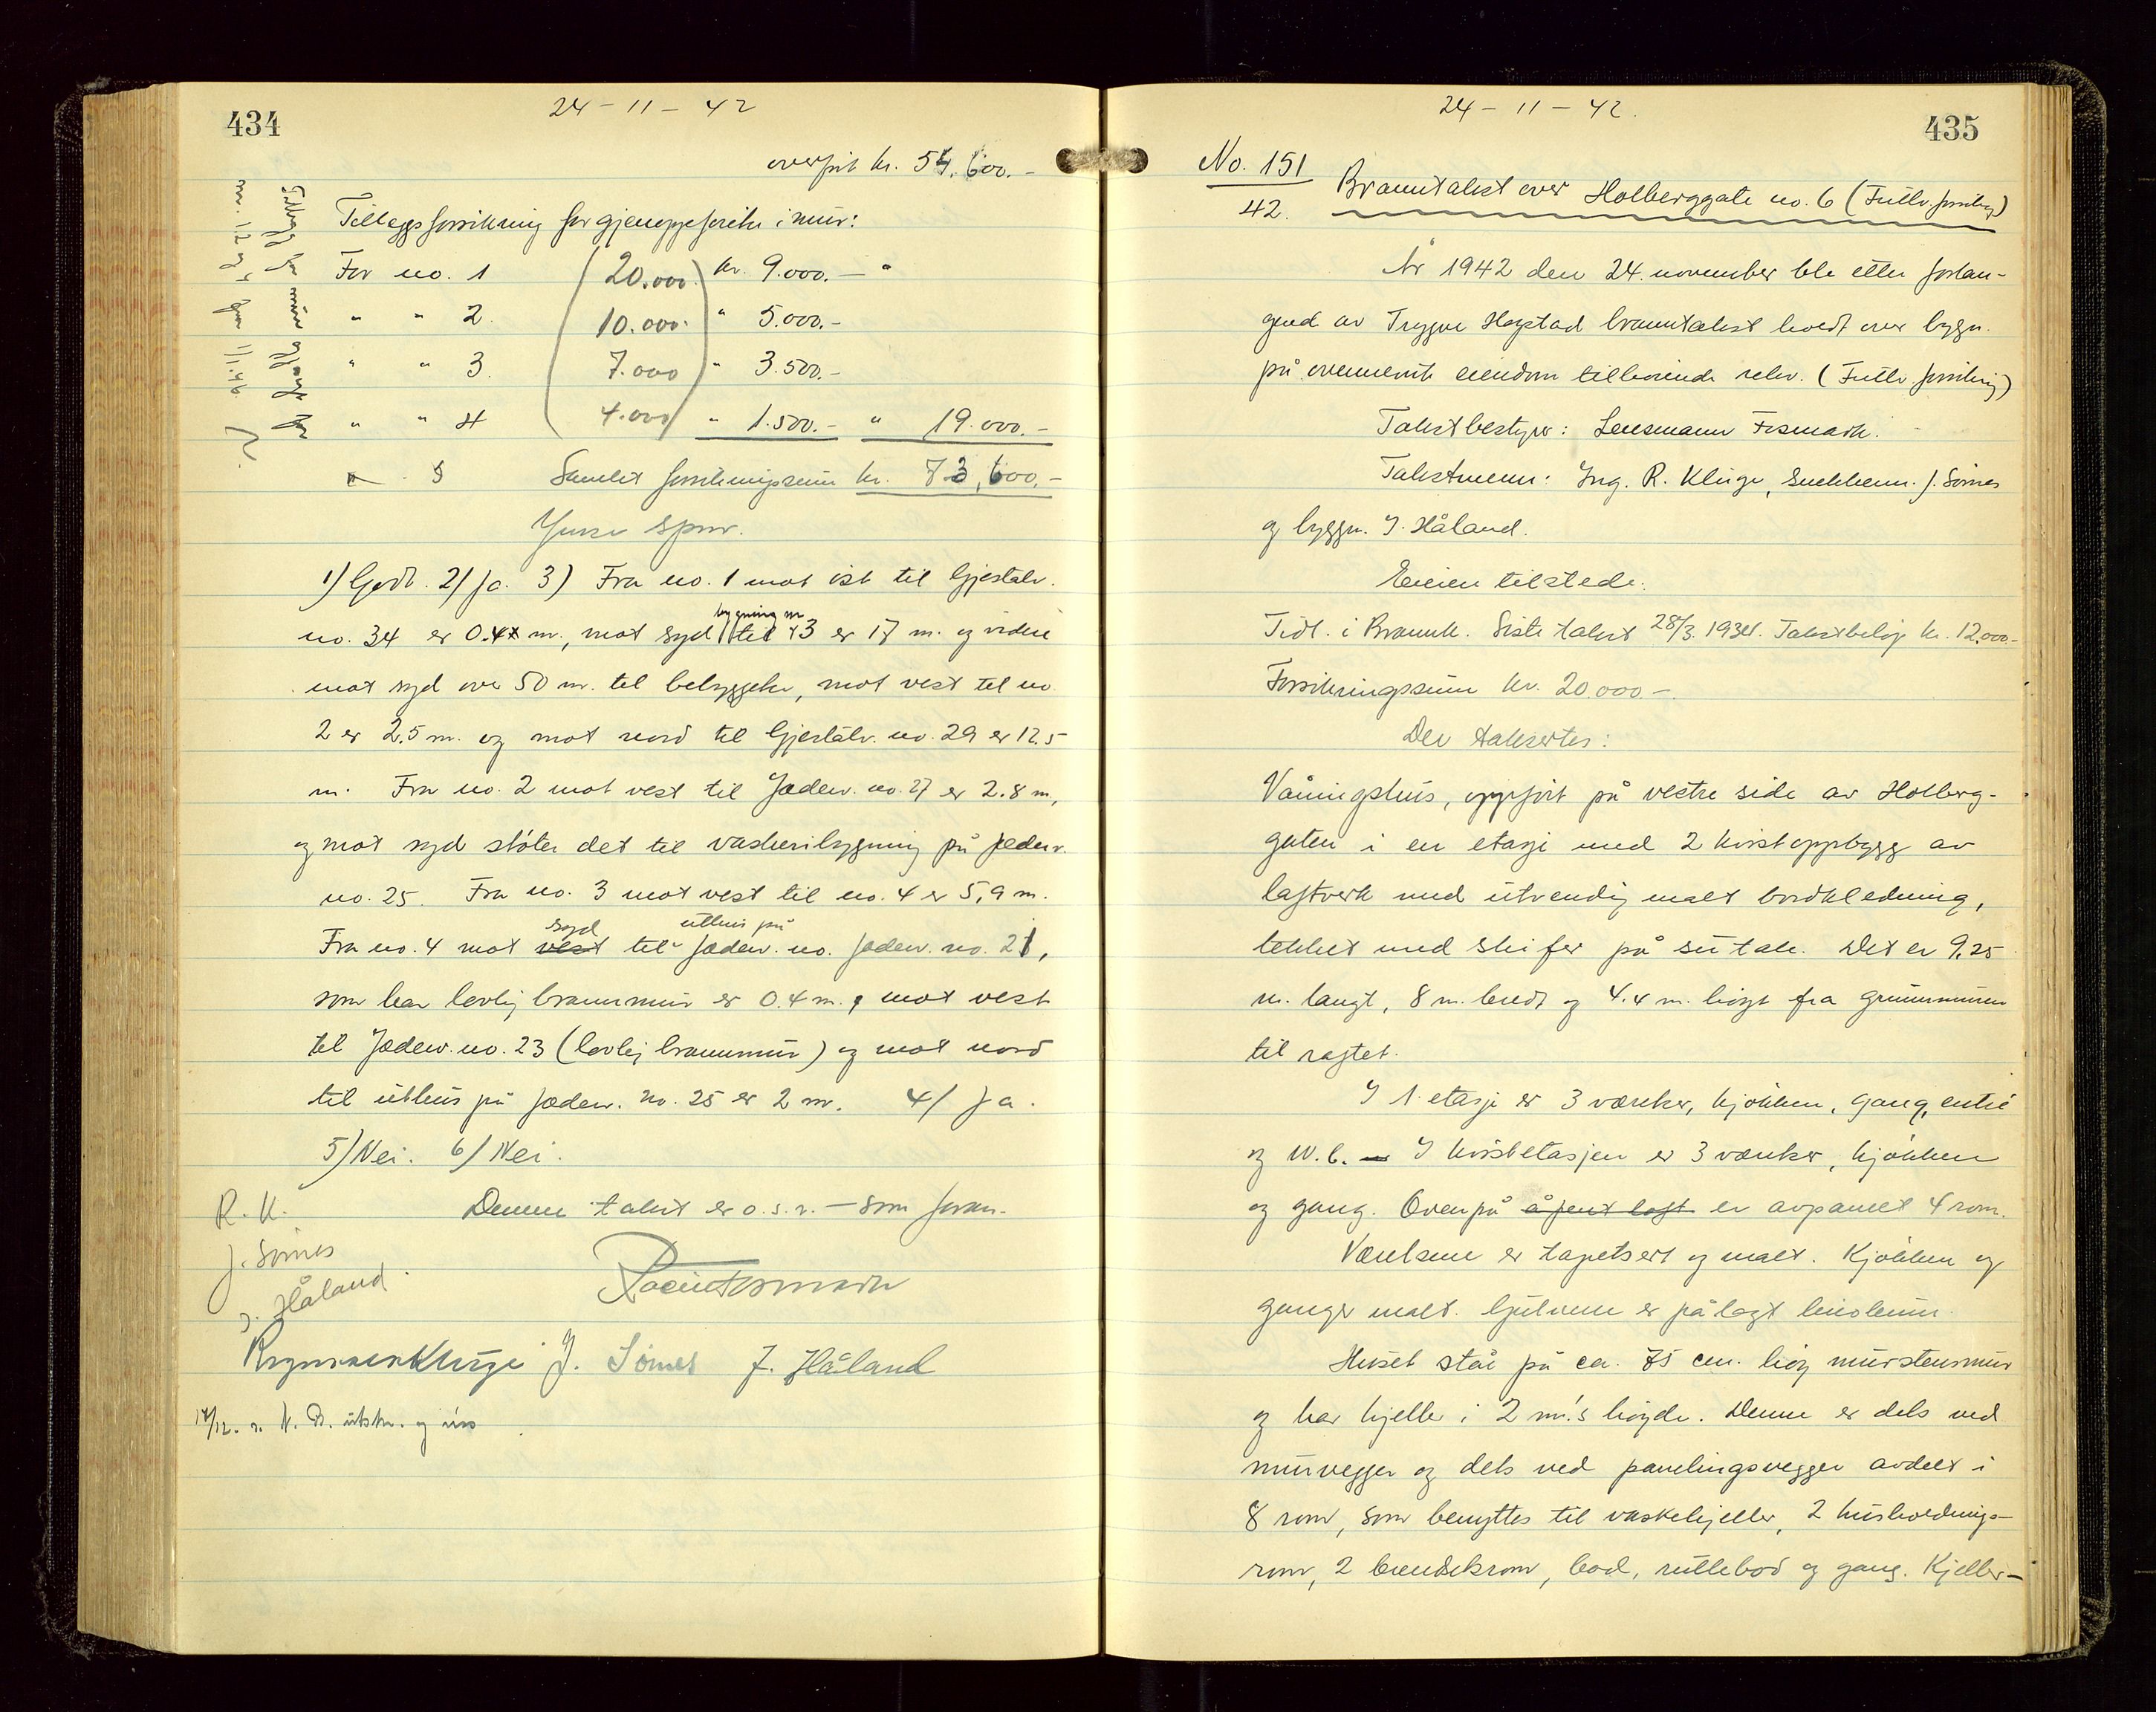 434
24 - 11 - 42
overført kr. 54.600.-
Tilleggsforsikring for gjenoppførelse i mur:
For no. 1 (20.000.) kr. 9.000.- "
" " 2. 10.000. " 5.000.-
" " 3. 7.000 " 3.500.-
" " 4 4.000 " 1.500.- " 19.000.-
Samlet forsikringssum kr. 73,600.-
1) Godt. 2/ Ja. 3) Fra no. 1 mot øst til Gjesdalv.
bygning nr
no. 34 er 0.4 m., mot syd til 3 er 17 m. og videre
mot syd over 50 m. til bebyggelse, mot vest til no
2 er 2.5 m. og mot nord til Gjesdalv. no. 29 er 12.5
m. Fra no. 2 mot vest til Jæderv. no. 27 er 2.8 m,
og mot syd støter det til vaskeribygning på Jæderv.
no. 25. Fra no. 3 mot vest til no. 4 er 5,9 m.
syd uthus på
Fra no. 4 mot vest til Jæderv. no. Jæderv. no. 21,
som har lovlig brannmur er 0.4 m., mot vest
til Jæderv. no. 23 (lovlig brannmur) og mot nord
til uthus på Jæderv. no. 25 er 2 m. 4/ Ja.
5) Nei. 6/ Nei.
R. K. Denne takst er o.s.v. - som foran.
J. Sömes
J. Håland.
Kluge J. Sömes J. Håland
17/12. utskr.
24 - 11 - 42.
435
No. 151
42.
Branntakst over Holberggate no. 6 (Fullv. forsikring)
År 1942 den 24. november ble etter forlan-
gend av Trygve Hogstad branntakst holdt over bygn.
på ovennevnte eiendom tilhørende rekv. (Fullv. forsikring)
Takstbestyrer: Lensmann Fosmark.
Takstmenn: Ing. R. Kluge, Snekkerm. J. Sömes
og byggm. J. Håland.
Eieren tilstede.
Tidl. i Brannk. Siste takst 28/3. 1934. Takstbeløp kr. 12.000.-
Forsikringssum kr. 20.000.-
Der taksertes:
Våningshus, oppført på vestre side av Holberg-
gaten i en etasje med 2 kvistoppbygg av
laftverk med utvendig malt bordkledning,
tekket med skifer på sutak. Det er 9.25
m. langt, 8 m. bredt og 4.4 m. høgt fra grunnmuren
til raftet.
I 1. etasje er 3 værelser, kjøkken, gang, entré
og W.C. - I kvistetasjen er 3 værelser, kjøkken
og gang. Ovenpå åpent loft er avpanelt 4 rom.
Værelsene er tapetsert og malt. Kjøkken og
ganger malt. Gulvene er pålagt linoleum.
Huset står på ca. 75 cm. høg murstensmur
og har kjeller i 2 m.'s høyde. Denne er dels ved
murvegger og dels ved panelingsvegger avdelt i
8 rom, som benyttes til vaskekjeller, 2 husholdnings-
rom, 2 brendselsrom, bod, rullebod og gang. Kjeller-